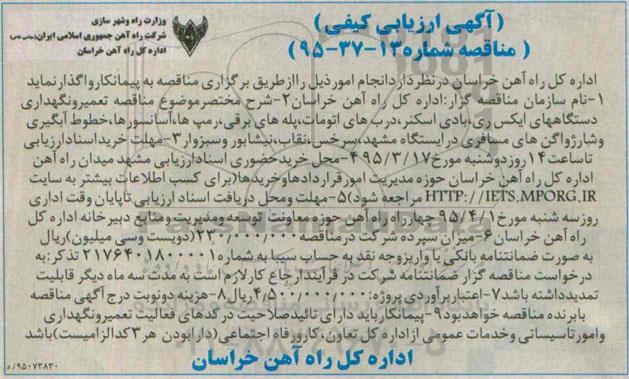 (آگهی ارزیابی کیفی)
( مناقصه شماره ۱۳-۳۷-۹۵)
وزارت راه و شهر سازی
شرکت راه آهن جمهوری اسلامی ایران(سهامی خاص)
اداره کل راه آهن خراسان
اداره کل راه آهن خراسان در نظر دارد انجام امور ذیل را از طریق برگزاری مناقصه به پیمانکار واگذار نماید
۱-نام سازمان مناقصه گزار:اداره کل راه آهن خراسان۲-شرح مختصر موضوع مناقصه تعمیر و نگهداری
دستگاههای ایکس ری،بادی اسکنر،درب های اتومات،پله های برقی،رمپ ها،آسانسورها،خطوط آبگیری
و شارژ واگن های مسافری در ایستگاه مشهد،سرخس،نقاب،نیشابور و سبزوار۳-مهلت خرید اسناد ارزیابی
تا ساعت ۱۴ روز دوشنبه مورخ ۹۵/۳/۱۷ ۴-محل خرید حضوری اسناد ارزیابی مشهد میدان راه آهن
اداره کل راه آهن خراسان حوزه مدیریت امور قراردادها و خریدها(برای کسب اطلاعات بیشتر به سایت
HTTP://IETS.MPORG.IR مراجعه شود)۵-مهلت و محل دریافت اسناد ارزیابی تا پایان وقت اداری
روز سه شنبه مورخ ۹۵/۴/۱ چهارراه راه آهن حوزه معاونت توسعه و مدیریت و منابع دبیرخانه اداره کل
راه آهن خراسان۶-میزان سپرده شرکت در مناقصه ۲۳۰/۰۰۰/۰۰۰(دویست وسی میلیون)ریال
به صورت ضمانتنامه بانکی یا واریز وجه نقد به حساب سیبا به شماره ۲۱۷۶۴۰۱۸۰۰۰۰۱ تذکر:به
درخواست مناقصه گزار ضمانتنامه شرکت در فرآیند ارجاع کار لازم است به مدت سه ماه دیگر قابلیت
تمدید داشته باشد۷-اعتبار برآوردی پروژه:۴/۵۰۰/۰۰۰/۰۰۰ریال۸-هزینه دو نوبت درج آگهی مناقصه
با برنده مناقصه خواهد بود۹-پیمانکار باید دارای تائید صلاحیت در کدهای فعالیت تعمیر و نگهداری
و امور تاسیساتی و خدمات عمومی از اداره کل تعاون،کار و رفاه اجتماعی(دارا بودن هر ۳ کد الزامیست)باشد
اداره کل راه آهن خراسان
۹۵۰۷۳۸۳۰/د